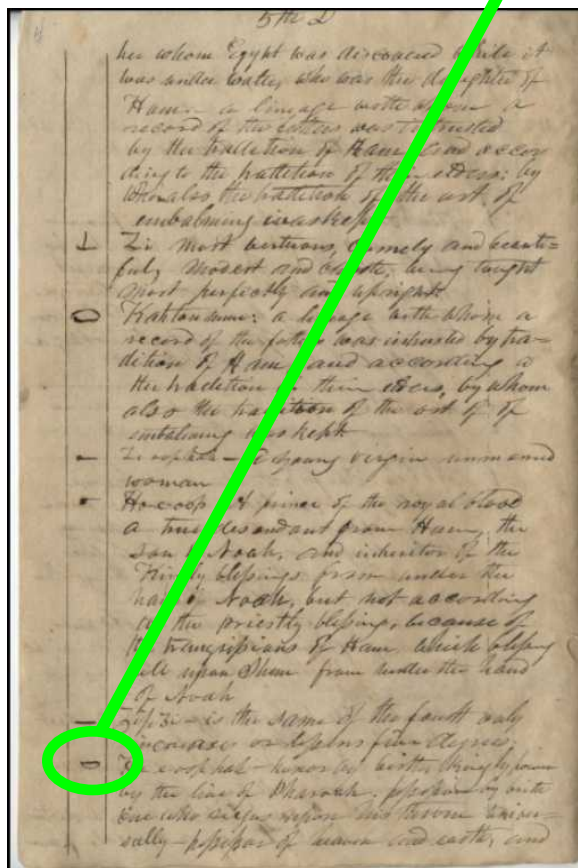 5th D
her whom Egypt was discovered while it
was under water, who was the daughter of
Ham— a lineage with whom a
record of the fathers was intrusted
by the tradition of Ham and accor
ding to the tradition of their elders: by
whom also the tradition of the art of
embalming was kept
Zi most virtuous, comely and beauti=
ful, modest and being taught
most perfectly and upright
Kahtoumun: a lineage with whom a
record of the fathers was intrusted by tra=
dition of Ham and according
the tradition of their elders, by whom
also the tradition of the art of of
embalming was kept
Zi oop hah — A young virgin unmarried
woman
Ho e oop A prince of the royal blood
a true descendant from Ham, the
son of Noah, and inheritor of the
Kingly blessings from under the
hand of Noah, but not according
to the priestly blessing, because of
the transgressions of Ham, which blessing
fell upon Shem from under the hand
of Noah
is the same of the fourth only
increases or lessens five degrees,
honor by birth, kingly power
by the line of Pharaoh. possession by birth
one who reigns upon his throne univer=
sally — possessor of heaven and earth, and